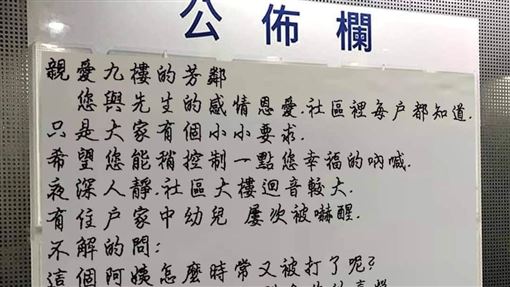 公佈欄
親愛九樓的芳鄰
您與先生的感情恩愛.社區裡每户都知道.
只是大家有個小小要求.
希望您能稍控制一點您幸福的吶喊.
夜深人靜.社區大樓迴音較大.
有住户家中幼兒 屢次被嚇醒.
不解的問:
這個阿姨怎麼時常又被打了呢?